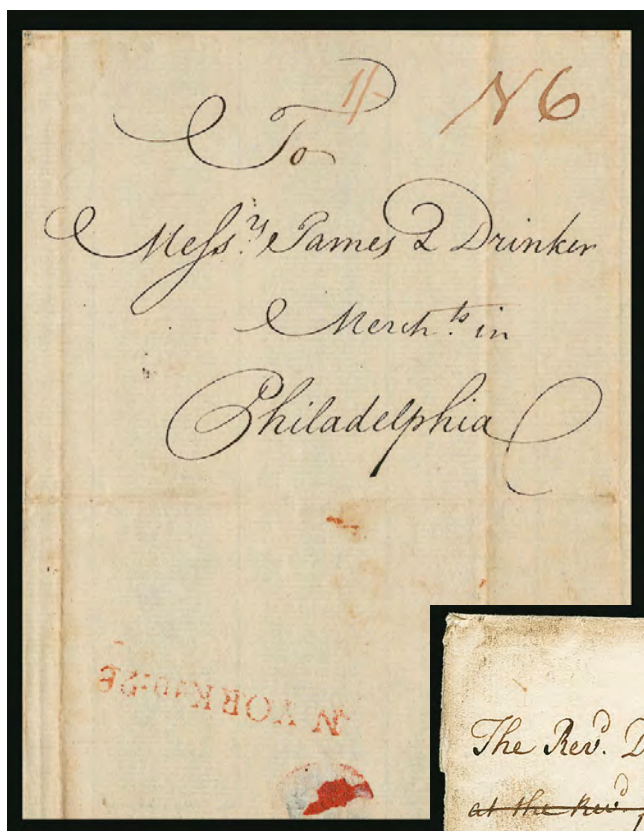 1/-
N 6
To
Mess.rs James & Drinker
Merch.ts in
Philadelphia
N*YORK*
The Rev.d D
at the Rev.d